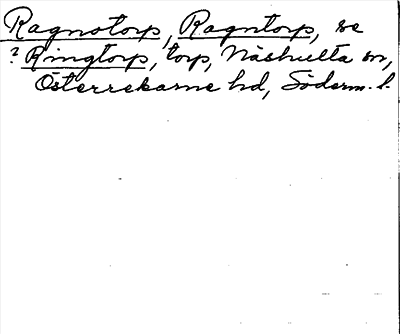 Ragnotorp, Ragntorp, se
? Ringtorp, torp, Näshulta sn,
Österrekarne hd, Söderm. l.